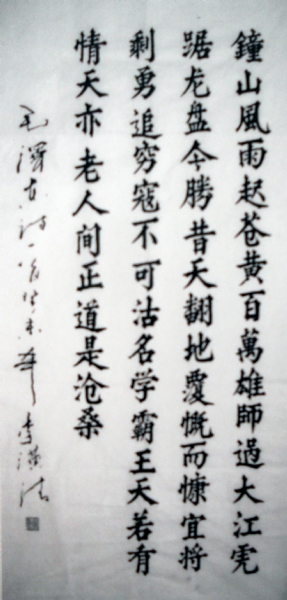 鐘山風雨起苍黄百萬雄師過大江虎
踞龙盘今勝昔天翻地覆慨而慷宜将
剩勇追穷寇不可沽名学霸王天若有
情天亦老人间正道是沧桑
毛澤东诗一首